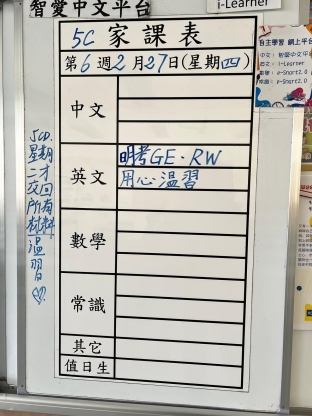 智愛中文平台
i-Learner
5C 家課表
第6週2月27日(星期四)
中文
英文
明考GE、RW
用心溫習
數學
常識
其它
值日生
5CD
星期
二才
交回
所有
材料
溫習
自主學習 網上平台
中文：智愛中文平台
英文：i-Learner